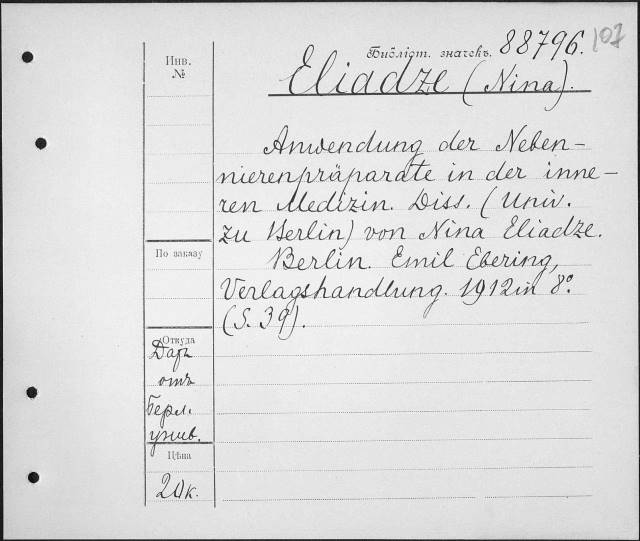 Библіот. значекъ. 88796. 107
Eliadze (Nina).
Инв.
№
Anwendung der Neben-
nierenpräparate in der inne-
ren Medizin. Diss. (Univ.
zu Berlin) von Nina Eliadze.
Berlin. Emil Ebering,
Verlagshandlung. 1912 in 8°.
(S. 39).
По заказу
Откуда
Даръ
отъ
Берл.
унив.
Цѣна
20к.